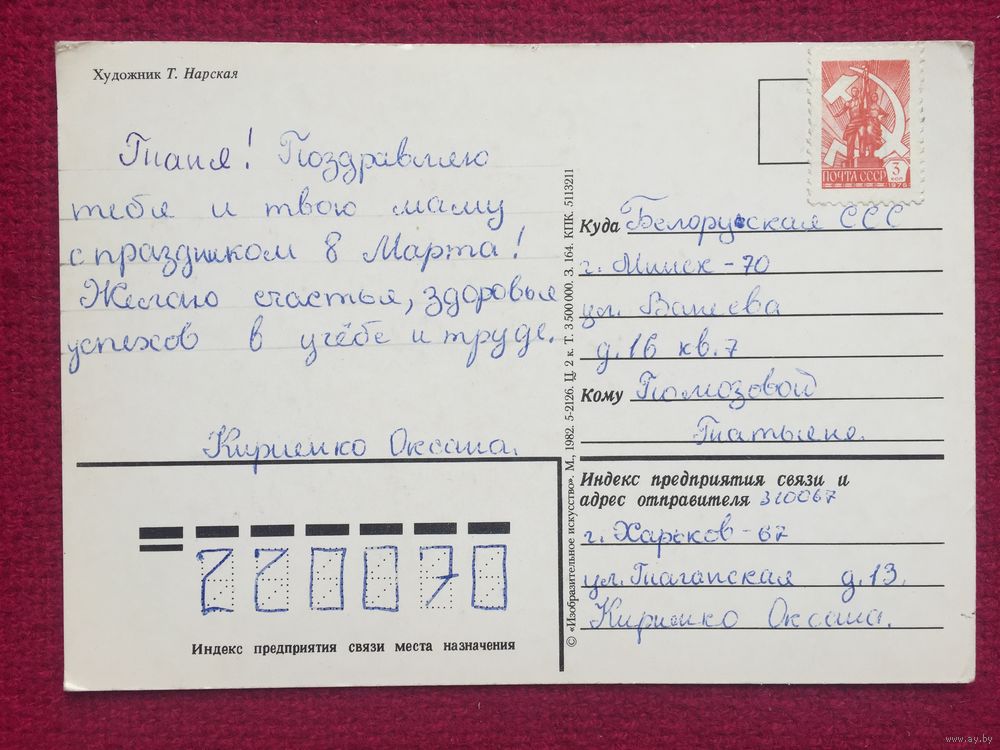 Художник Т. Нарская
Таня! Поздравляю
тебя и твою маму
с праздником 8 Марта!
Желаю счастья, здоровья
успехов в учёбе и труде.
Кириенко Оксана.
220070
Индекс предприятия связи места назначения
© «Изобразительное искусство». М., 1982. 5-2126. Ц. 2 к. Т. 3 500 000. З. 164. КПК. 5113211
3
КОП
ПОЧТА СССР
1976
Куда Белорусская ССС
г. Минск-70
ул. Ванеева
д. 16 кв. 7
Кому Помозовой
Татьяне.
Индекс предприятия связи и
адрес отправителя 310067
г. Харьков-67
ул. Таганская д. 13.
Кириенко Оксана.
www.ay.by